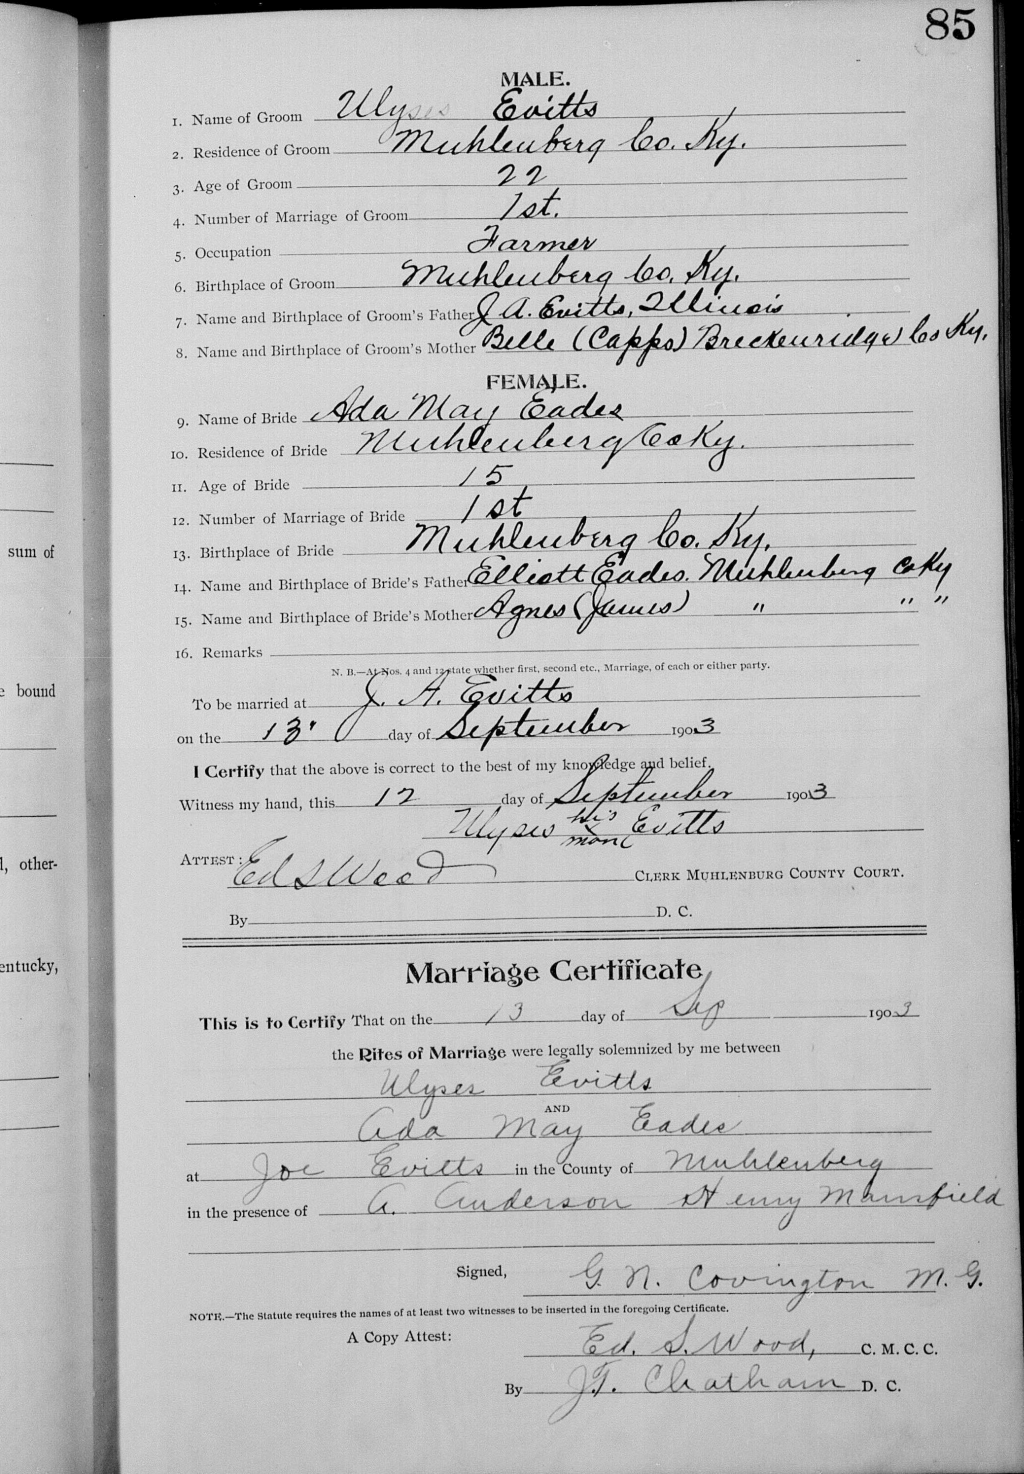 85
MALE.
1. Name of Groom Ulyses Evitts
2. Residence of Groom Muhlenberg Co. Ky.
3. Age of Groom 22
4. Number of Marriage of Groom 1st.
5. Occupation Farmer
6. Birthplace of Groom Muhlenberg Co. Ky.
7. Name and Birthplace of Groom's Father J. A. Evitts, Illinois
8. Name and Birthplace of Groom's Mother Belle (Capps) Breckenridge Co Ky.
FEMALE.
9. Name of Bride Ada May Eades
10. Residence of Bride Muhlenberg Co Ky.
11. Age of Bride 15
12. Number of Marriage of Bride 1st
13. Birthplace of Bride Muhlenberg Co. Ky.
14. Name and Birthplace of Bride's Father Elliott Eades. Muhlenberg Co Ky
15. Name and Birthplace of Bride's Mother Agnes (James) " " "
16. Remarks
N. B.—At Nos. 4 and 12 state whether first, second etc., Marriage, of each or either party.
To be married at J. A. Evitts
on the 13 day of September 1903
I Certify that the above is correct to the best of my knowledge and belief.
Witness my hand, this 12 day of September 1903
Ulyses his x mark Evitts
ATTEST: Ed S Wood CLERK MUHLENBURG COUNTY COURT.
By D. C.
Marriage Certificate
This is to Certify That on the 13 day of Sep 1903
the Rites of Marriage were legally solemnized by me between
Ulyses Evitts
AND
Ada May Eades
at Joe Evitts in the County of Muhlenberg
in the presence of A. Anderson Henry Mansfield
Signed, G. N. Covington M. G.
NOTE.—The Statute requires the names of at least two witnesses to be inserted in the foregoing Certificate.
A Copy Attest: Ed. S. Wood, C. M. C. C.
By J.T. Chatham D. C.
sum of
bound
other-
entucky,